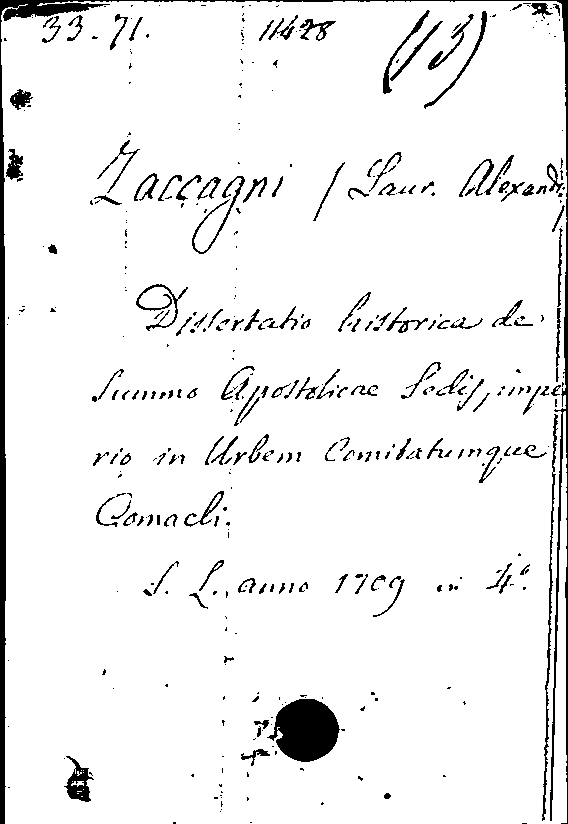 33.71. 11428 (13)
Zaccagni / Laur. Alexandr
Dissertatio historica de
Summo Apostolicae Sedis, impe
rio in Urbem Comitatumque
Comacli.
S. L. anno 1709 in 4°.